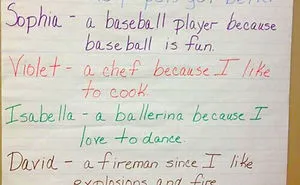 Sophia - a baseball player because
baseball is fun.
Violet - a chef because I like
to cook.
Isabella - a ballerina because I
love to dance.
David - a fireman since I like
explosions and fire